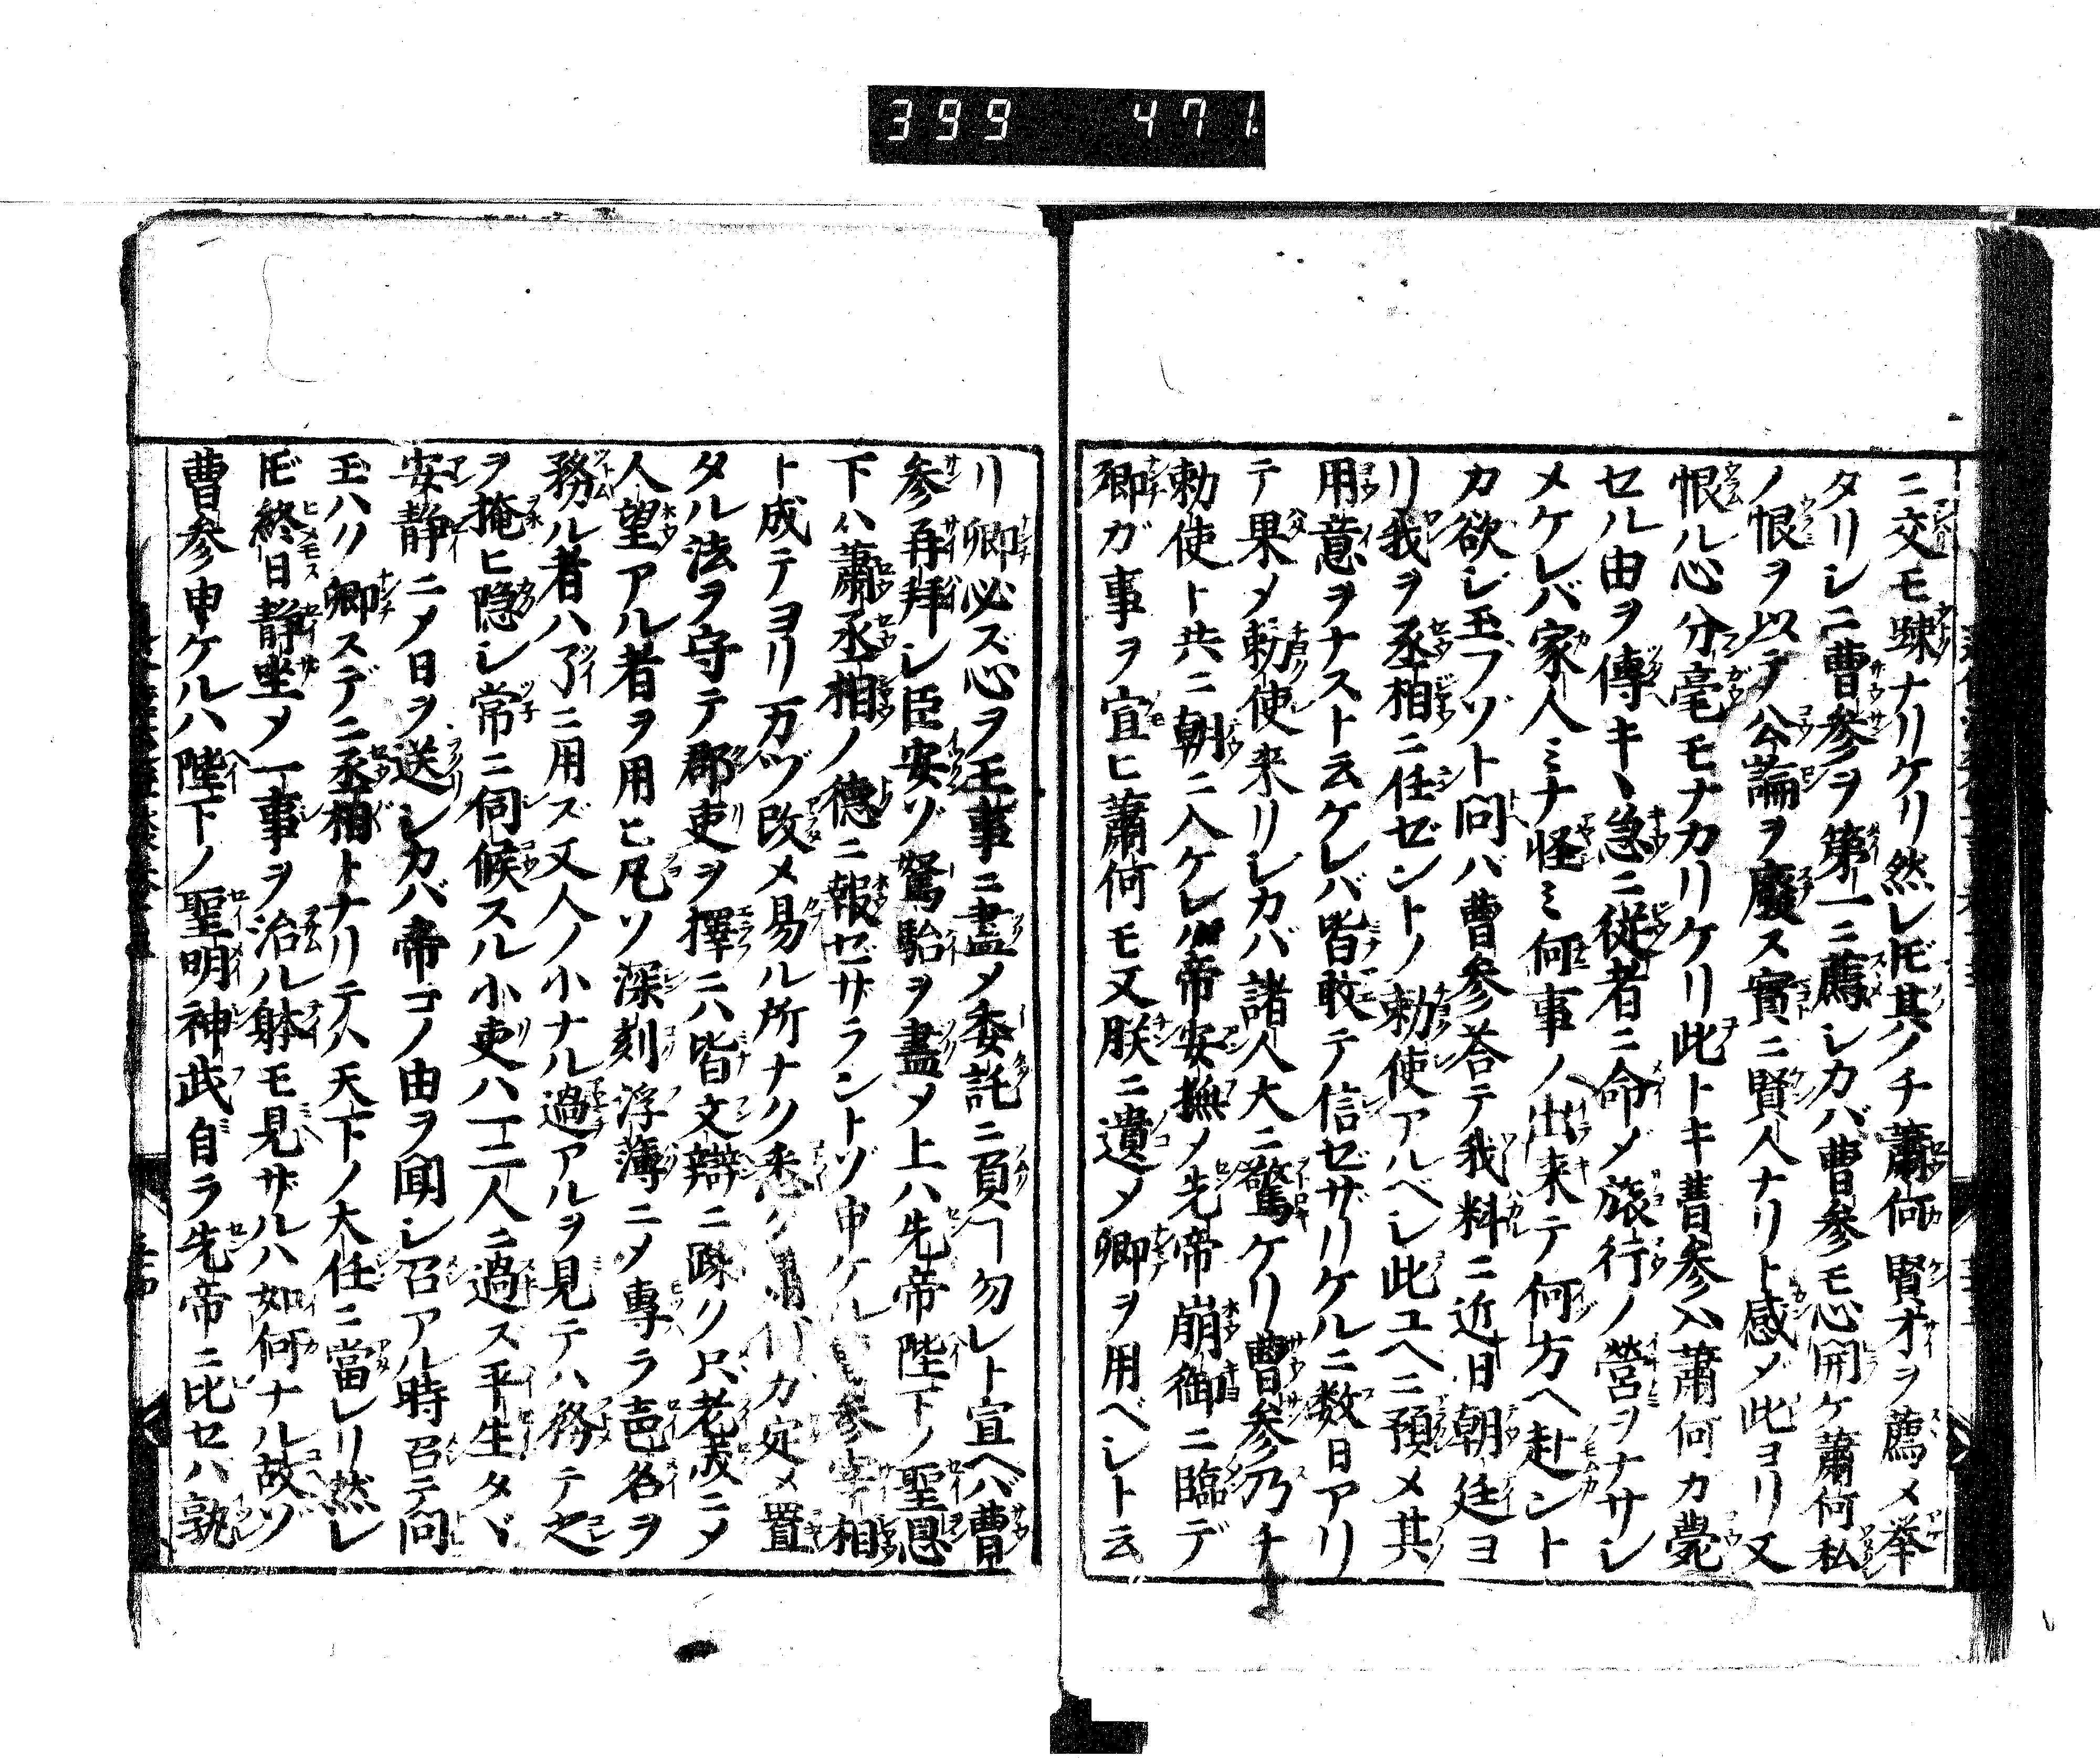 399 471
ニ交モ踈ナリケリ然レ𪜈其ノチ蕭何賢才ヲ薦メ挙
タリシニ曹參ヲ第一ニ薦シカバ曹參モ心開ケ蕭何私
ノ恨ヲ以テ公論ヲ廢ス實ニ賢人ナリト感〆此ヨリ又
恨ル心分毫モナカリケリ此トキ曹參ハ蕭何カ薨
セル由ヲ傳キヽ急ニ従者ニ命〆旅行ノ営ヲナサシ
メケレバ家人ミナ怪ミ何事ノ出来テ何方ヘ赴ント
カ欲シ玉フゾト問バ曹參荅テ我料ニ近日朝廷ヨ
リ我ヲ丞相ニ任ゼントノ勅使アルベシ此ユヘニ預メ其
用意ヲナスト云ケレバ皆敢テ信ゼザリケルニ数日アリ
テ果〆勅使来リシカバ諸人大ニ驚ケリ曹參乃チ
勅使ト共ニ朝ニ入ケレバ帝安撫〆先帝崩御ニ臨デ
卿ガ事ヲ宣ヒ蕭何モ又朕ニ遺〆卿ヲ用ベシト云
リ卿必ズ心ヲ王事ニ盡〆委託ニ負ヿ勿レト宣ヘバ曹
參再拜シ臣安ゾ駑駘ヲ盡〆上ハ先帝陛下ノ聖恩
下ハ蕭丞相ノ徳ニ報ゼザラントゾ申ケル參宰相
ト成テヨリ万ヅ改メ易ル所ナク悉ク カ定メ置
タル法ヲ守テ郡吏ヲ擇ニハ皆文辯ニ踈ク只老成ニ〆
人望アル者ヲ用ヒ凡ソ深刻浮薄ニ〆專ラ声名ヲ
務ル者ハ了ニ用ズ又人ノ小ナル過アルヲ見テハ務テ之
ヲ掩ヒ隠シ常ニ伺候スル小吏ハ一二人ニ過ズ平生タヾ
安静ニ〆日ヲ送シカバ帝コノ由ヲ聞シ召アル時召テ問
玉ハク卿スデニ丞相トナリテハ天下ノ大任ニ當レリ然レ
𪜈終日静坐〆一事ヲ治ル躰モ見ザルハ如何ナル故ゾ
曹參申ケルハ陛下ノ聖明神武自ラ先帝ニ比セハ孰